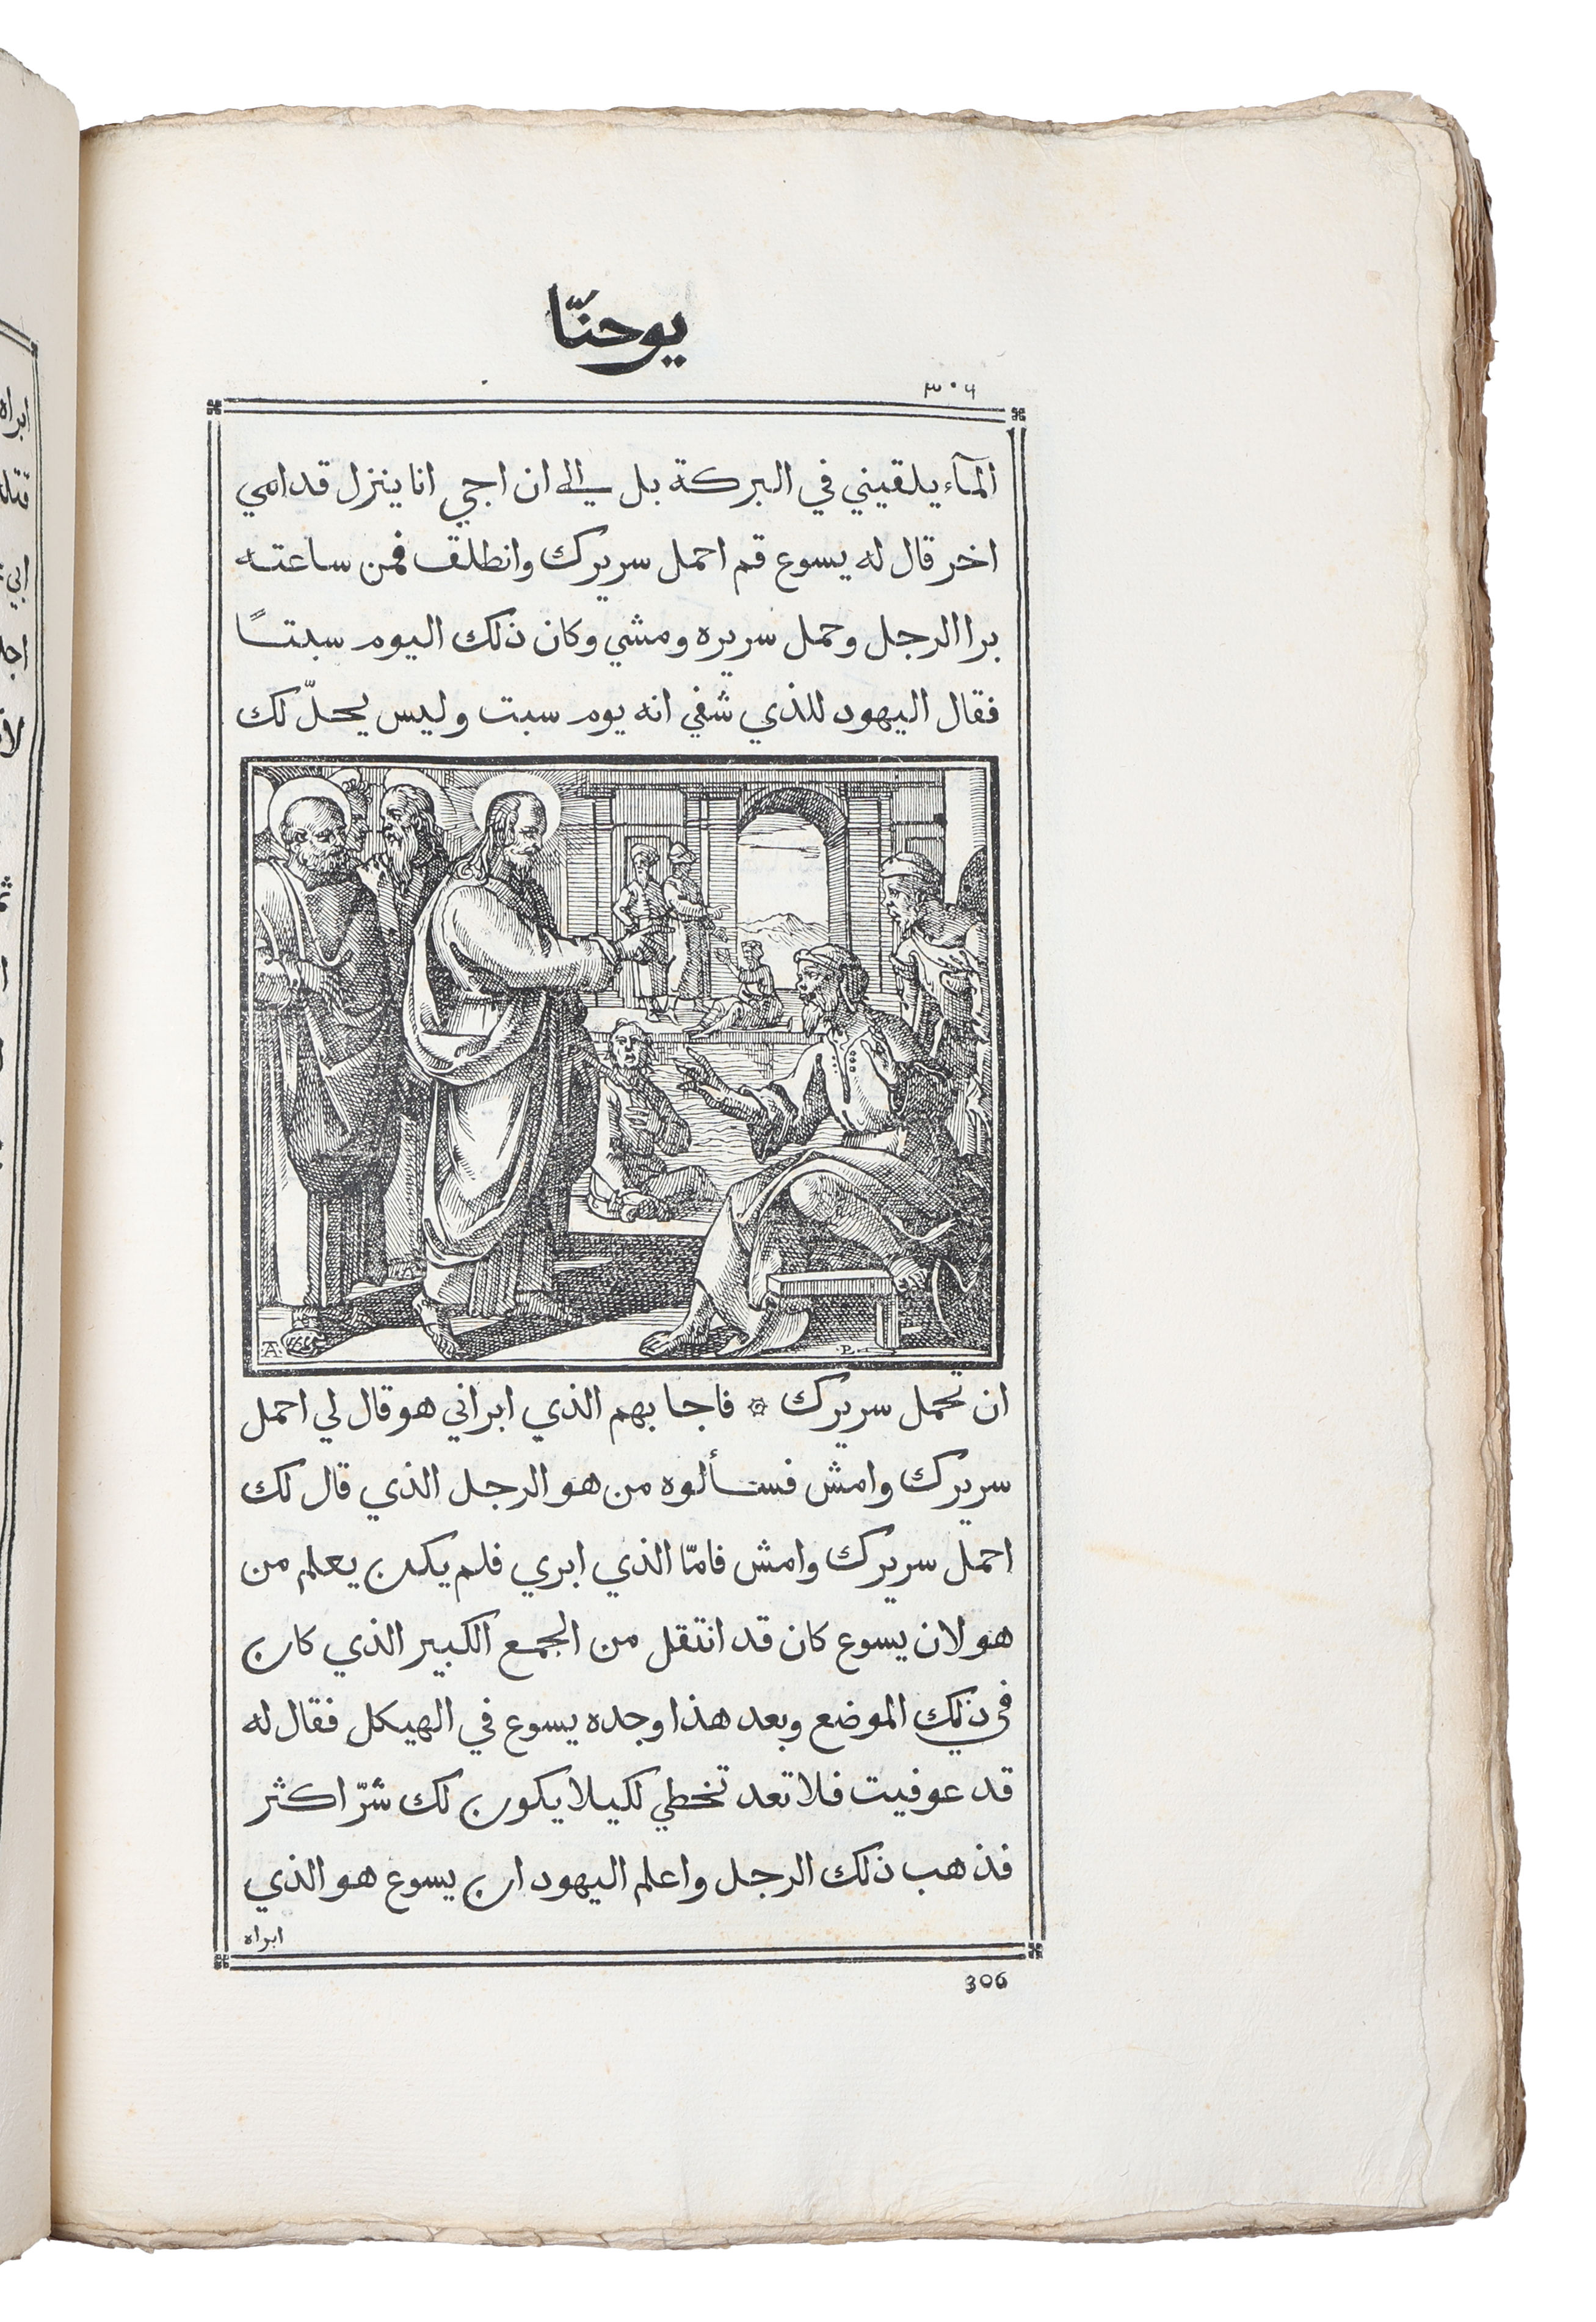 يوحنّا
٣٠٦
المآء يلقيني في البركة بل الى ان اجي انا ينزل قدامي
اخر قال له يسوع قم احمل سريرك وانطلق فمن ساعته
برا الرجل وحمل سريره ومشي وكان ذلك اليوم سبتًا
فقال اليهود للذي شفي انه يوم سبت وليس يحلّ لك
ان تحمل سريرك ۞ فاجا بهم الذي ابراني هو قال لي احمل
سريرك وامش فسألوه من هو الرجل الذي قال لك
احمل سريرك وامش فامّا الذي ابري فلم يكن يعلم من
هو لان يسوع كان قد انتقل من الجمع الكبير الذي كان
في ذلك الموضع وبعد هذا وجده يسوع في الهيكل فقال له
قد عوفيت فلا تعد تخطي لكيلا يكون لك شرّ اكثر
فذهب ذلك الرجل واعلم اليهود ان يسوع هو الذي
ابراه
306